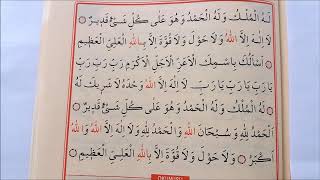 لَهُ الْمُلْكُ وَلَهُ الْحَمْدُ وَهُوَ عَلَى كُلِّ شَيْءٍ قَدِيرٌ
لَا اِلٰهَ اِلَّا اللهُ وَلَا حَوْلَ وَلَا قُوَّةَ اِلَّا بِاللهِ الْعَلِيِّ الْعَظِيمِ
اَسْأَلُكَ بِاسْمِكَ الْاَعَزِّ الْاَجَلِّ الْاَكْرَمِ رَبِّ رَبِّ
يَا رَبِّ يَا رَبِّ يَا رَبِّ لَا اِلٰهَ اِلَّا اللهُ وَحْدَهُ لَا شَرِيكَ لَهُ
لَهُ الْمُلْكُ وَلَهُ الْحَمْدُ وَهُوَ عَلَى كُلِّ شَيْءٍ قَدِيرٌ
اَلْحَمْدُ لِلّٰهِ وَسُبْحَانَ اللهِ وَالْحَمْدُ لِلّٰهِ وَلَا اِلٰهَ اِلَّا اللهُ وَاللهُ
اَكْبَرُ وَلَا حَوْلَ وَلَا قُوَّةَ اِلَّا بِاللهِ الْعَلِيِّ الْعَظِيمِ